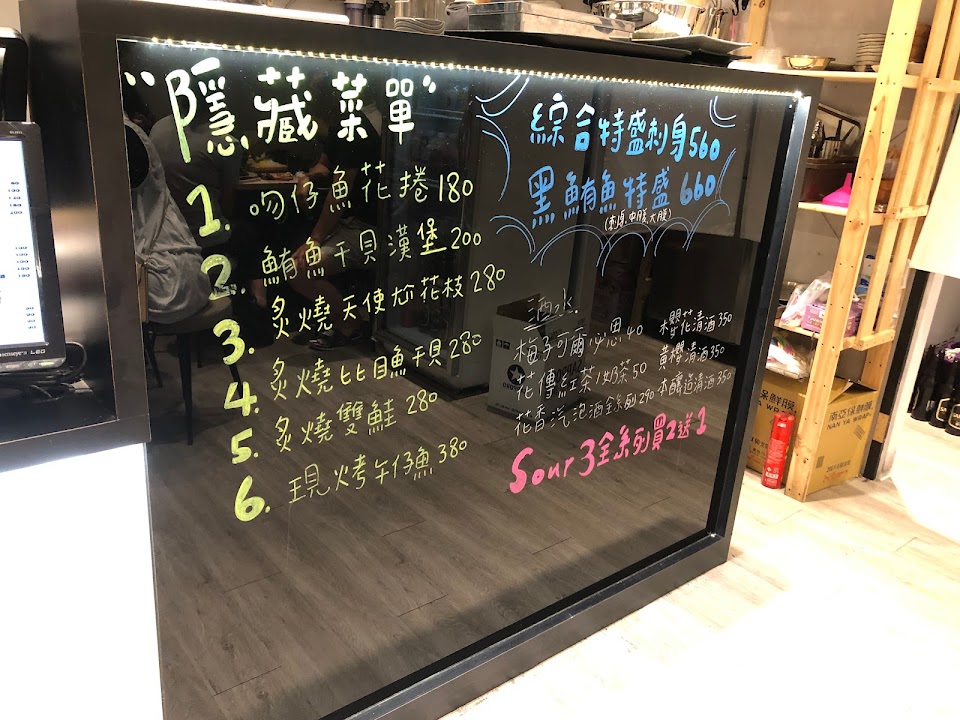 "隱藏菜單"
1. 吻仔魚花捲 180
2. 鮪魚干貝漢堡 200
3. 炙燒天使尬花枝 280
4. 炙燒比目魚干貝 280
5. 炙燒雙鮭 280
6. 現烤午仔魚 380
綜合特盛刺身 560
黑鮪魚特盛 660
(刺身.中腹.大腹)
酒水.
梅子可爾必思 40
花傳紅茶/奶茶 50
花香汽泡酒全系列 290
櫻花清酒 350
黃櫻清酒 350
本釀造清酒 350
Sour 3全系列買2送1
南亞保鮮膜
NAN YA WRAP